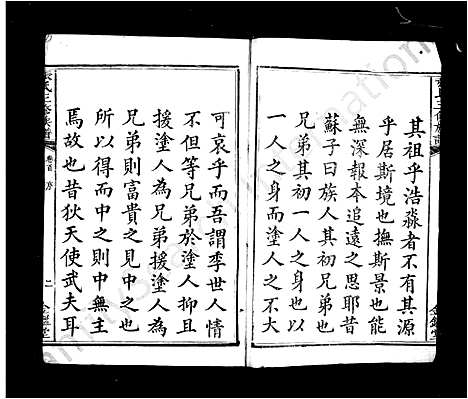 其祖乎浩淼者不有其源
乎居斯境也撫斯景也能
無深報本追遠之思耶昔
蘇子曰族人其初兄弟也
兄弟其初一人之身也以
一人之身而塗人之不大
可哀乎而吾謂季世人情
不但等兄弟於塗人抑且
援塗人為兄弟援塗人為
兄弟則富貴之見中之也
所以得而中之則中無主
焉故也昔狄天使武夫耳
氏三修族譜
卷首
序
二
金鑑堂